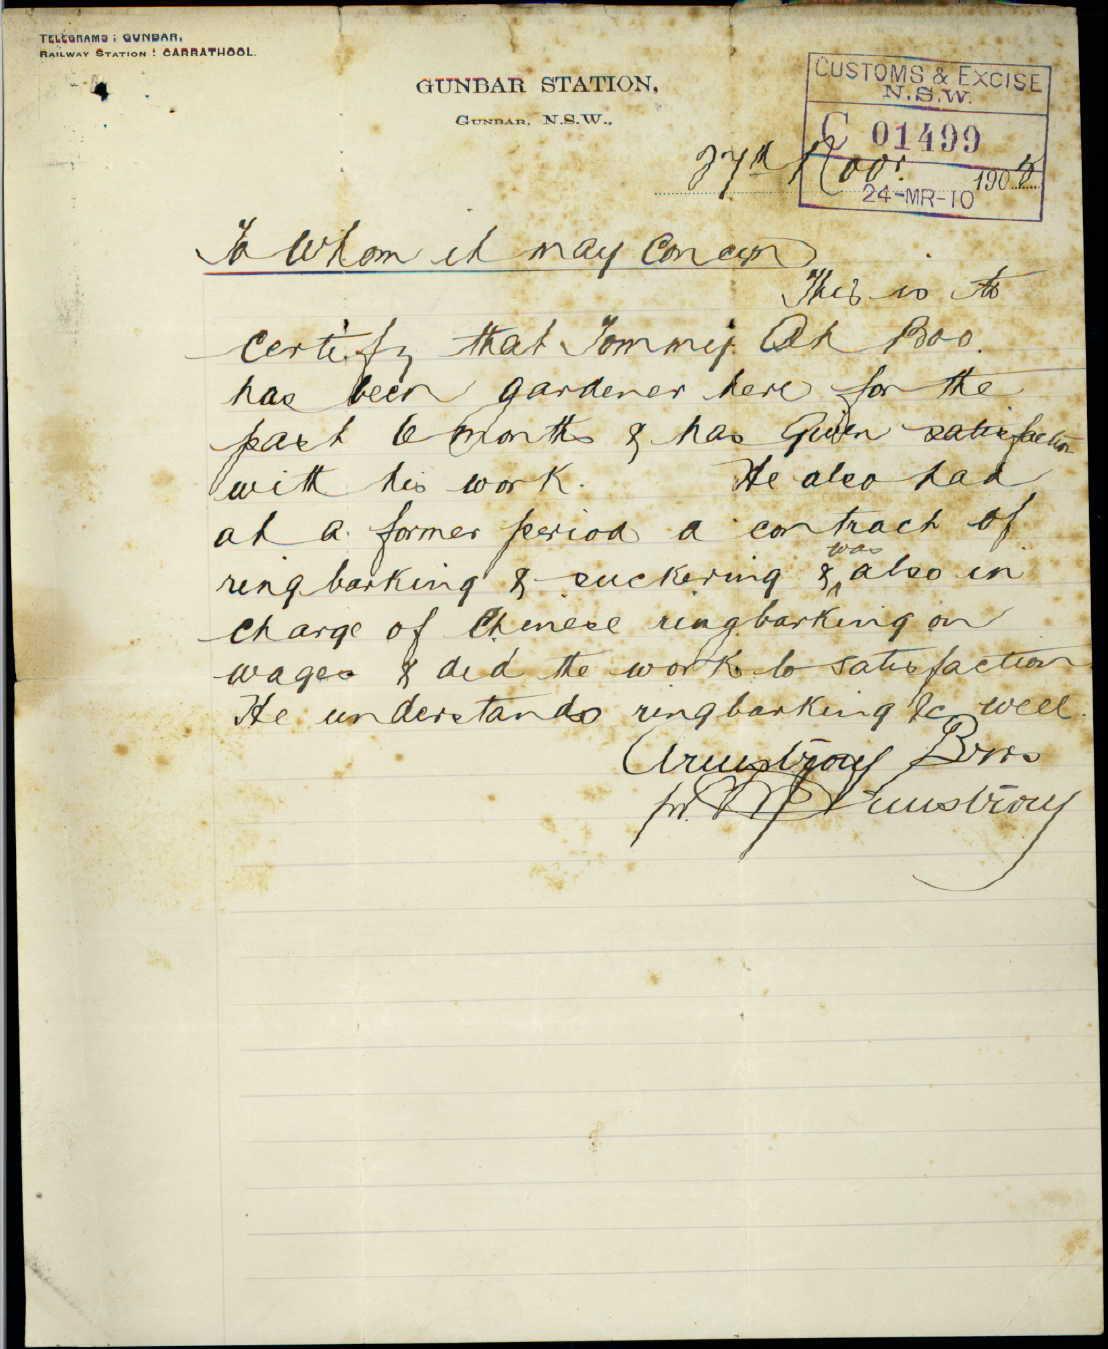 TELEGRAMS: GUNBAR.
RAILWAY STATION: CARRATHOOL.
GUNBAR STATION,
GUNBAR, N.S.W.,
CUSTOMS & EXCISE
N.S.W.
C 01499
24-MR-10
27th Novr. 1908
To Whom it may Concern
This is to
certify that Tommy Ah Boo
has been gardener here for the
past 6 months & has given satisfaction
with his work. He also had
at a former period a contract of
ringbarking & suckering & was also in
charge of Chinese ringbarking on
wages & did the work to satisfaction
He understands ringbarking &c well.
Armstrong Bros
pr. Armstrong